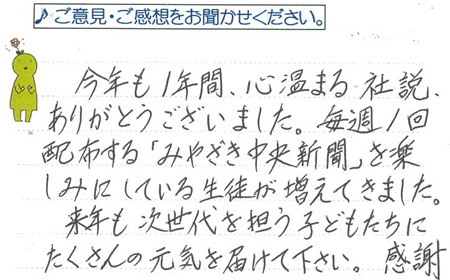 ♪ご意見・ご感想をお聞かせください。
今年も1年間、心温まる社説、
ありがとうございました。毎週1回
配布する「みやざき中央新聞」を楽
しみにしている生徒が増えてきました。
来年も次世代を担う子どもたちに
たくさんの元気を届けて下さい。感謝